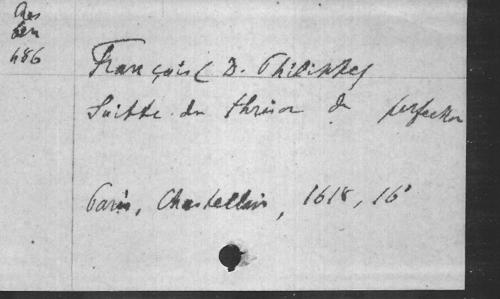 Res
486
François D. Philippes
Suitte du thresor de perfection
Paris, Chastellain, 1618, 16°